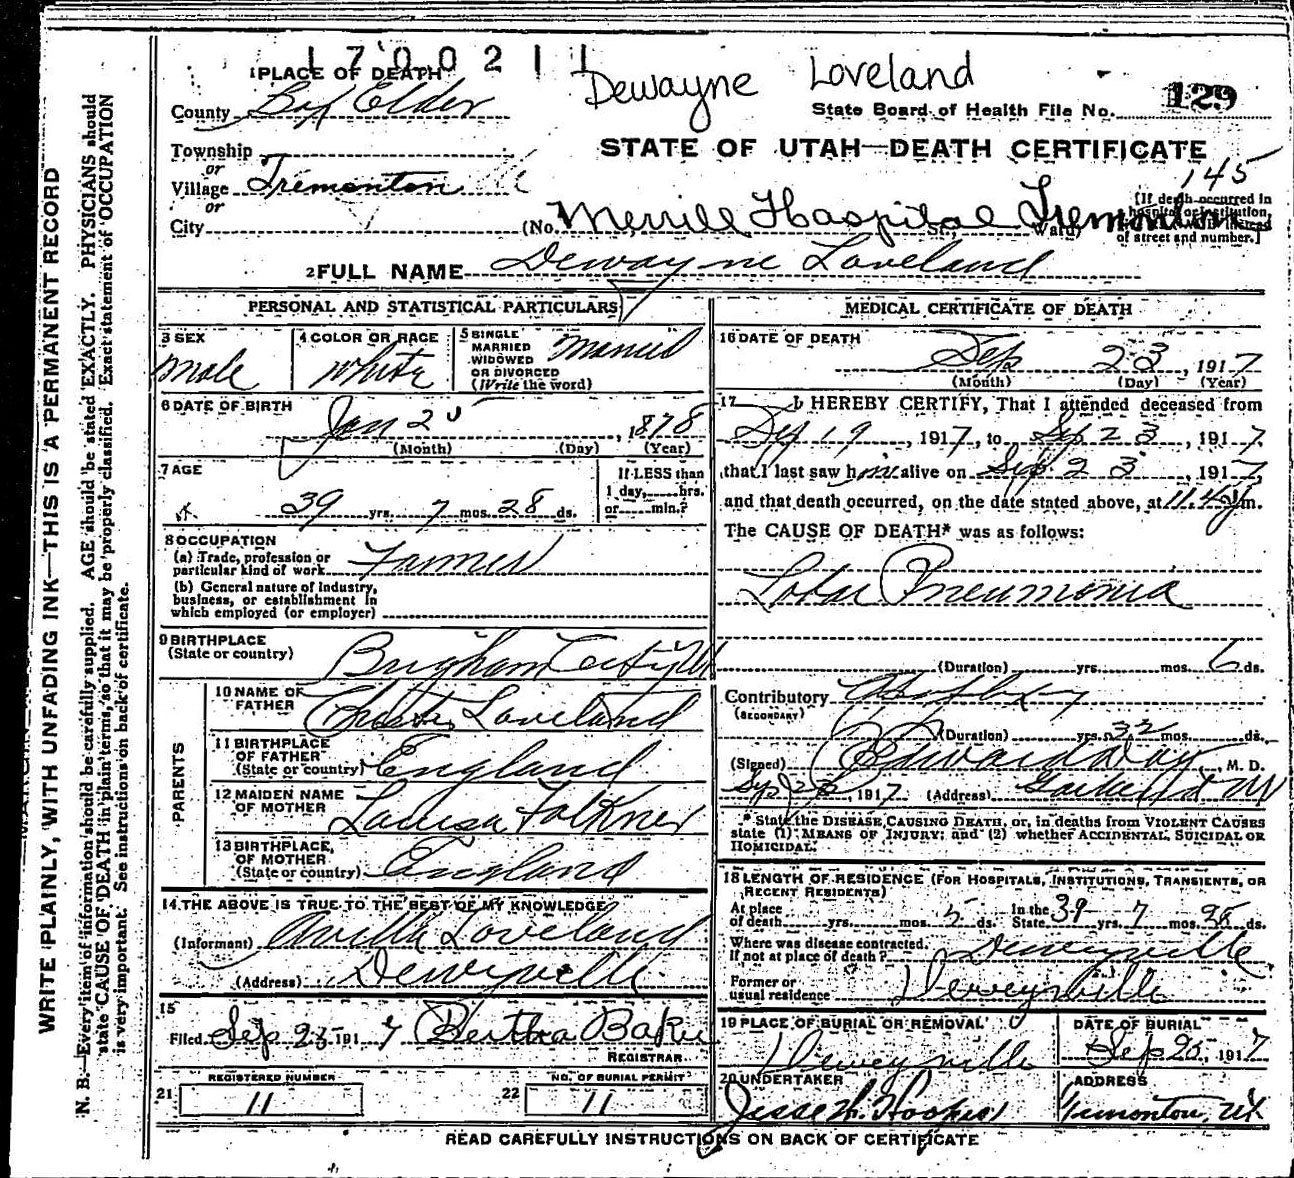 1700211
Dewayne Loveland
1 PLACE OF DEATH
County Box Elder
State Board of Health File No. 129
STATE OF UTAH—DEATH CERTIFICATE
Township
or
Village Tremonton
or
City
145
(No. Merrill Hospital Tremonton St., Ward)
[If death occurred in
hospital or institution,
instead
of street and number.]
2 FULL NAME Dewayne Loveland
PERSONAL AND STATISTICAL PARTICULARS
3 SEX
Male
4 COLOR OR RACE
White
5 SINGLE
MARRIED
WIDOWED
OR DIVORCED
(Write the word)
Married
6 DATE OF BIRTH
Jan 25, 1878
(Month) (Day) (Year)
7 AGE
39 yrs. 7 mos. 28 ds.
If LESS than
1 day, hrs.
or min.?
8 OCCUPATION
(a) Trade, profession or
particular kind of work Farmer
(b) General nature of industry,
business, or establishment in
which employed (or employer)
9 BIRTHPLACE
(State or country) Brigham City Ut
PARENTS
10 NAME OF
FATHER Loveland
11 BIRTHPLACE
OF FATHER
(State or country) England
12 MAIDEN NAME
OF MOTHER Louisa Folkner
13 BIRTHPLACE
OF MOTHER
(State or country) England
14 THE ABOVE IS TRUE TO THE BEST OF MY KNOWLEDGE
(Informant) Loveland
(Address) Deweyville
15
Filed Sep 25 1917 Bertha Baker
REGISTRAR
REGISTERED NUMBER
21 11
NO. OF BURIAL PERMIT
22 11
MEDICAL CERTIFICATE OF DEATH
16 DATE OF DEATH
Sep 23, 1917
(Month) (Day) (Year)
17 I HEREBY CERTIFY, That I attended deceased from
Sep 19, 1917, to Sep 23, 1917,
that I last saw him alive on Sep 23, 1917,
and that death occurred, on the date stated above, at m.
The CAUSE OF DEATH* was as follows:
Lobar Pneumonia
(Duration) yrs. mos. 6 ds.
Contributory
(SECONDARY)
(Duration) yrs. mos. ds.
(Signed) M. D.
1917 (Address) Garland Ut
* State the DISEASE CAUSING DEATH, or, in deaths from VIOLENT CAUSES
state (1) MEANS OF INJURY; and (2) whether ACCIDENTAL, SUICIDAL OR
HOMICIDAL.
18 LENGTH OF RESIDENCE (FOR HOSPITALS, INSTITUTIONS, TRANSIENTS, OR
RECENT RESIDENTS)
At place
of death yrs. mos. 5 ds. In the
State 39 yrs. 7 mos. 28 ds.
Where was disease contracted,
If not at place of death? Deweyville
Former or
usual residence Deweyville
19 PLACE OF BURIAL OR REMOVAL
Deweyville
DATE OF BURIAL
Sep 25, 1917
20 UNDERTAKER
Jesse H. Hooper
ADDRESS
Tremonton, Ut
READ CAREFULLY INSTRUCTIONS ON BACK OF CERTIFICATE
WRITE PLAINLY, WITH UNFADING INK—THIS IS A PERMANENT RECORD
N. B.—Every item of information should be carefully supplied. AGE should be stated EXACTLY. PHYSICIANS should
state CAUSE OF DEATH in plain terms, so that it may be properly classified. Exact statement of OCCUPATION
is very important. See instructions on back of certificate.